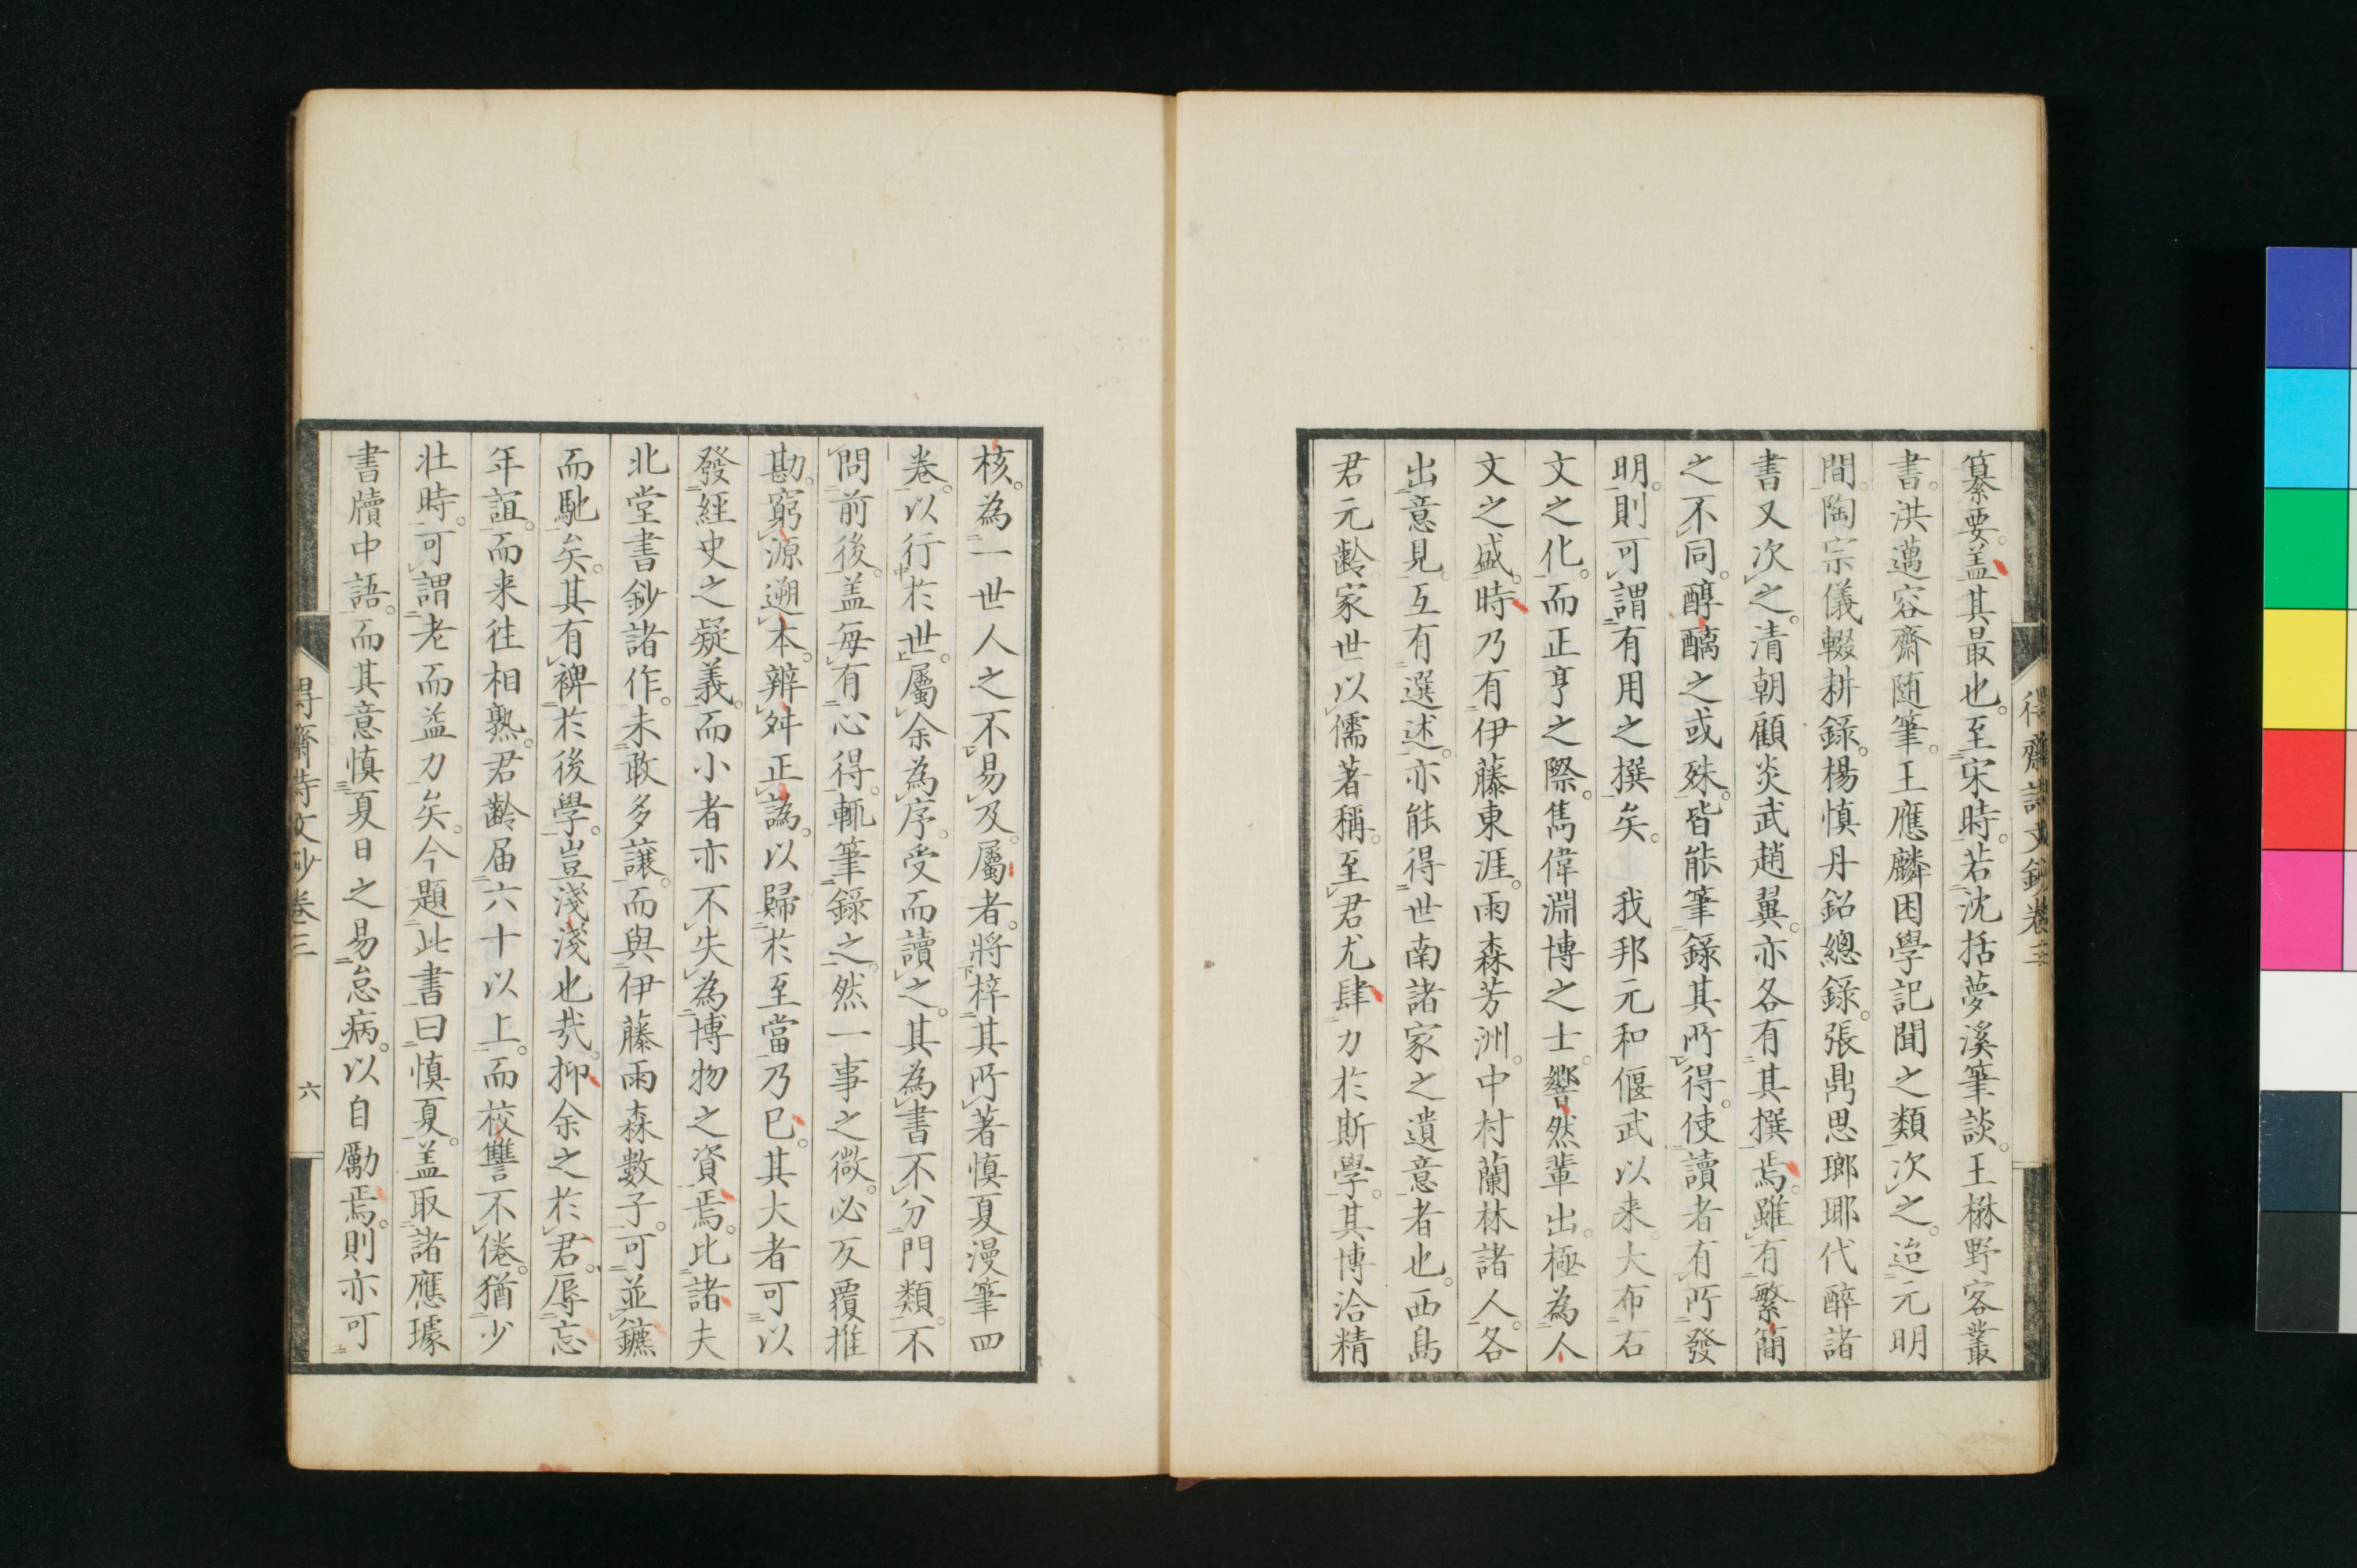 纂要。盖其最也。至宋時。若沈括夢溪筆談。王楙野客叢
書。洪邁容齋随筆。王應麟困學記聞之類次之。迨元明
間。陶宗儀輟耕錄。楊慎丹鉛總錄。張鼎思瑯琊代醉諸
書又次之。清朝顧炎武趙翼。亦各有其撰焉。雖有繁簡
之不同。醇醨之或殊。皆能筆錄其所得。使讀者有所發
明。則可謂有用之撰矣。 我邦元和偃武以来。大布右
文之化。而正亨之際。雋偉淵博之士。響然輩出。極為人
文之盛。時乃有伊藤東涯。雨森芳洲。中村蘭林諸人。各
出意見。互有選述。亦能得世南諸家之遺意者也。西島
君元齢家世以儒著稱。至君尤肆力於斯學。其博洽精
核。為一世人之不易及。屬者。將梓其所著慎夏漫筆四
卷。以行於世。屬余為序。受而讀之。其為書不分門類。不
問前後。盖毎有心得。輒筆錄之。然一事之微。必反覆推
勘。窮源遡本。辨舛正譌。以歸於至當乃已。其大者可以
發經史之疑義。而小者亦不失為博物之資焉。比諸夫
北堂書鈔諸作。未敢多讓。而與伊藤雨森數子。可並鑣
而馳矣。其有裨於後學。豈淺淺也哉。抑余之於君。辱忘
年誼。而来往相熟。君齡届六十以上。而校讐不倦。猶少
壮時。可謂老而益力矣。今題此書曰慎夏。盖取諸應璩
書牘中語。而其意慎夏日之易怠病。以自勵焉。則亦可
得齋詩文鈔卷三
六